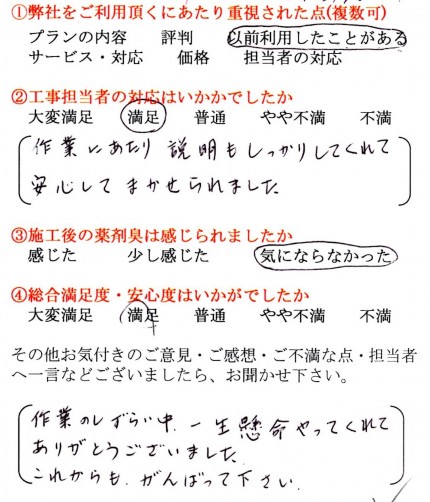 ①弊社をご利用頂くにあたり重視された点(複数可)
プランの内容 評判 以前利用したことがある
サービス・対応 価格 担当者の対応
②工事担当者の対応はいかかでしたか
大変満足 満足 普通 やや不満 不満
作業にあたり 説明もしっかりしてくれて
安心して まかせられました
③施工後の薬剤臭は感じられましたか
感じた 少し感じた 気にならなかった
④総合満足度・安心度はいかがでしたか
大変満足 満足 普通 やや不満 不満
その他お気付きのご意見・ご感想・ご不満な点・担当者
へ一言などございましたら、お聞かせ下さい。
作業のしずらい中、一生懸命やってくれて
ありがとうございました。
これからも、がんばって下さい。